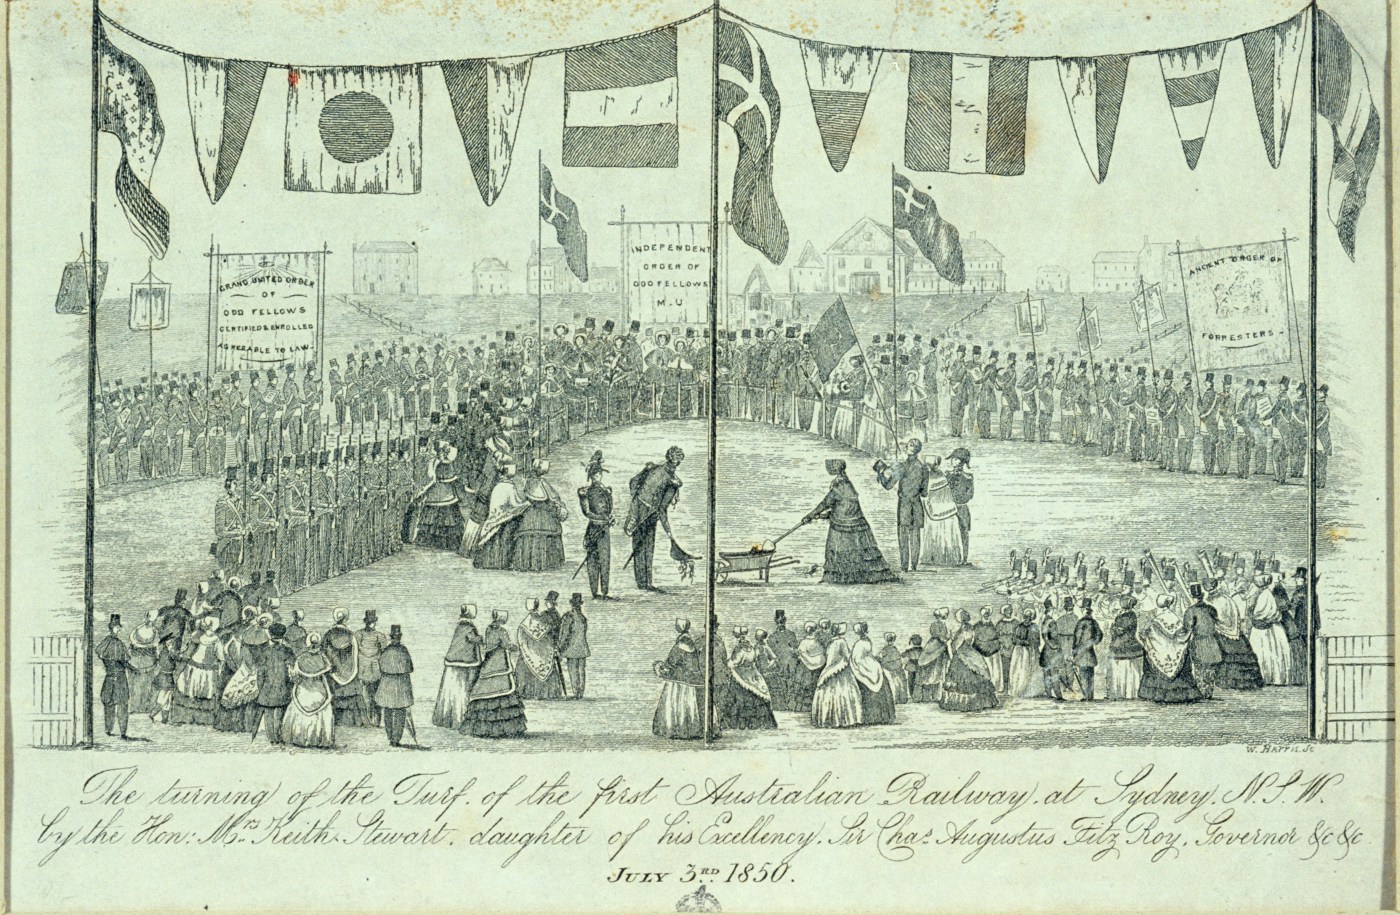 GRAND UNITED ORDER
OF
ODD FELLOWS
CERTIFIED & ENROLLED
AGREEABLE TO LAW.
INDEPENDENT
ORDER OF
ODD FELLOWS
M.U
ANCIENT ORDER OF
FORRESTERS
W. Harris. Sc
The turning of the Turf, of the first Australian Railway, at Sydney, N.S.W.
by the Hon: Mrs. Keith Stewart, daughter of his Excellency, Sir Chas. Augustus Fitz Roy, Governor &c &c
JULY 3RD 1850.